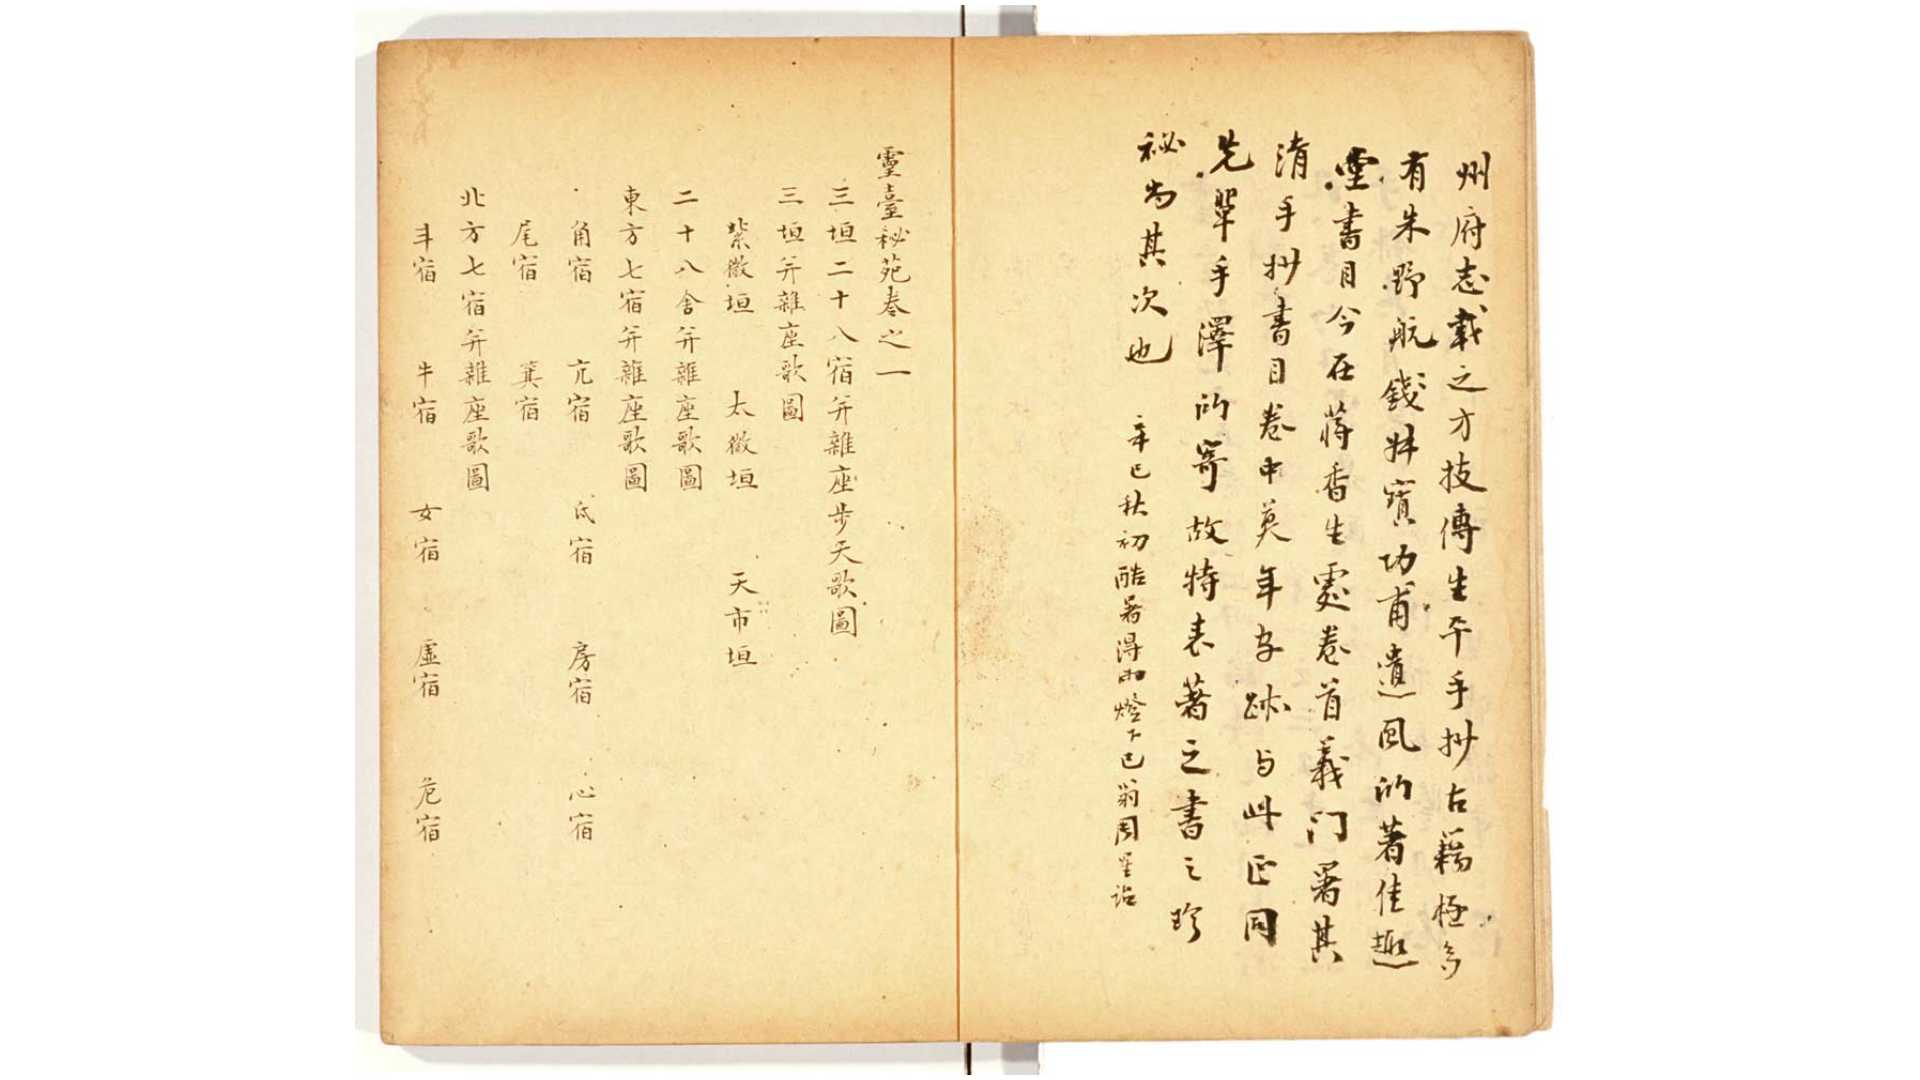 州府志載之方技傳生平手抄古籍極多
有朱野航錢姝寶功甫遺風的著佳趣
堂書目今在蔣香生處卷首義门署其
清手抄書目卷中莫年字跡与此正同
先輩手澤所寄故特表著之書之珍
秘为其次也
辛巳秋初酷暑得雨燈下巳翁周星詒
靈臺秘苑卷之一
三垣二十八宿并雜座步天歌圖
三垣并雜座歌圖
紫微垣 太微垣 天市垣
二十八舍并雜座歌圖
東方七宿并雜座歌圖
角宿 亢宿 氐宿 房宿 心宿
尾宿 箕宿
北方七宿并雜座歌圖
斗宿 牛宿 女宿 虛宿 危宿